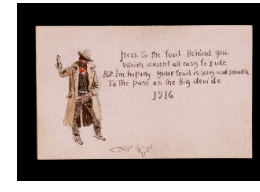 Heres to the trail Behind you
Which wasent all easy to ride
But Im hoping Your trail is long and smooth
To the pass on the Big devide
1916